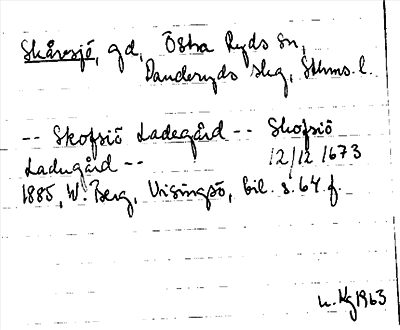 Skåvsjö, gd, Östra Ryds sn,
Danderyds skg, Sthms. l.
-- Skofsiö Ladegård -- Skofsiö
Ladugård -- 12/12 1673
1885, W. Berg, Visingsö, bil. s. 64 f.
1963